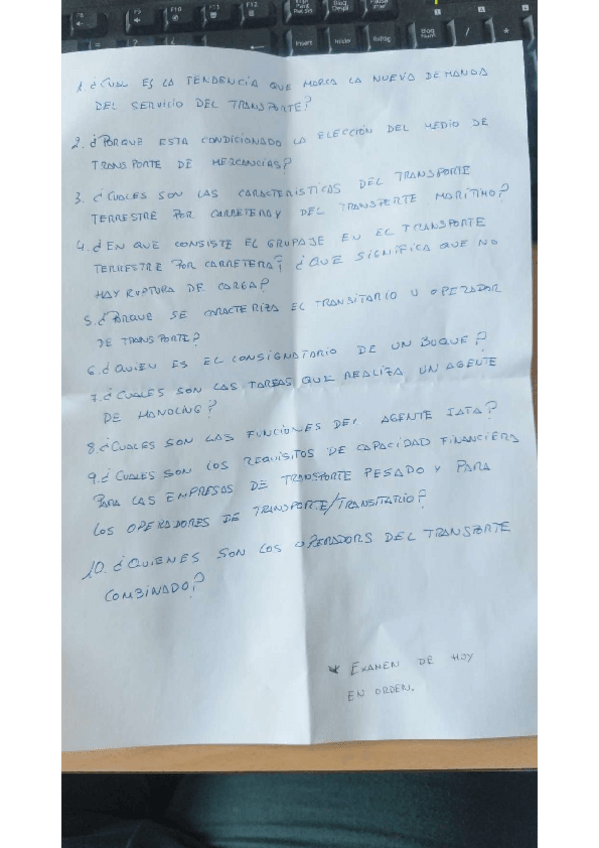 F10
F11
F12
Insert
Inicio
/
*
1. ¿CUAL ES LA TENDENCIA QUE MARCA LA NUEVA DEMANDA
DEL SERVICIO DEL TRANSPORTE?
2. ¿PORQUE ESTA CONDICIONADO LA ELECCIÓN DEL MEDIO DE
TRANSPORTE DE MERCANCIAS?
3. ¿CUALES SON LAS CARACTERISTICAS DEL TRANSPORTE
TERRESTRE POR CARRETERA Y DEL TRANSPORTE MARITIMO?
4. ¿EN QUE CONSISTE EL GRUPAJE EN EL TRANSPORTE
TERRESTRE POR CARRETERA? ¿QUE SIGNIFICA QUE NO
HAY RUPTURA DE CARGA?
5. ¿PORQUE SE CARACTERIZA EL TRANSITARIO U OPERADOR
DE TRANSPORTE?
6. ¿QUIEN ES EL CONSIGNATARIO DE UN BUQUE?
7. ¿CUALES SON LAS TAREAS QUE REALIZA UN AGENTE
DE HANDLING?
8. ¿CUALES SON LAS FUNCIONES DEL AGENTE IATA?
9. ¿CUALES SON LOS REQUISITOS DE CAPACIDAD FINANCIERA
PARA LAS EMPRESAS DE TRANSPORTE PESADO Y PARA
LOS OPERADORES DE TRANSPORTE/TRANSITARIO?
10. ¿QUIENES SON LOS OPERADORS DEL TRANSPORTE
COMBINADO?
* EXAMEN DE HOY
EN ORDEN.